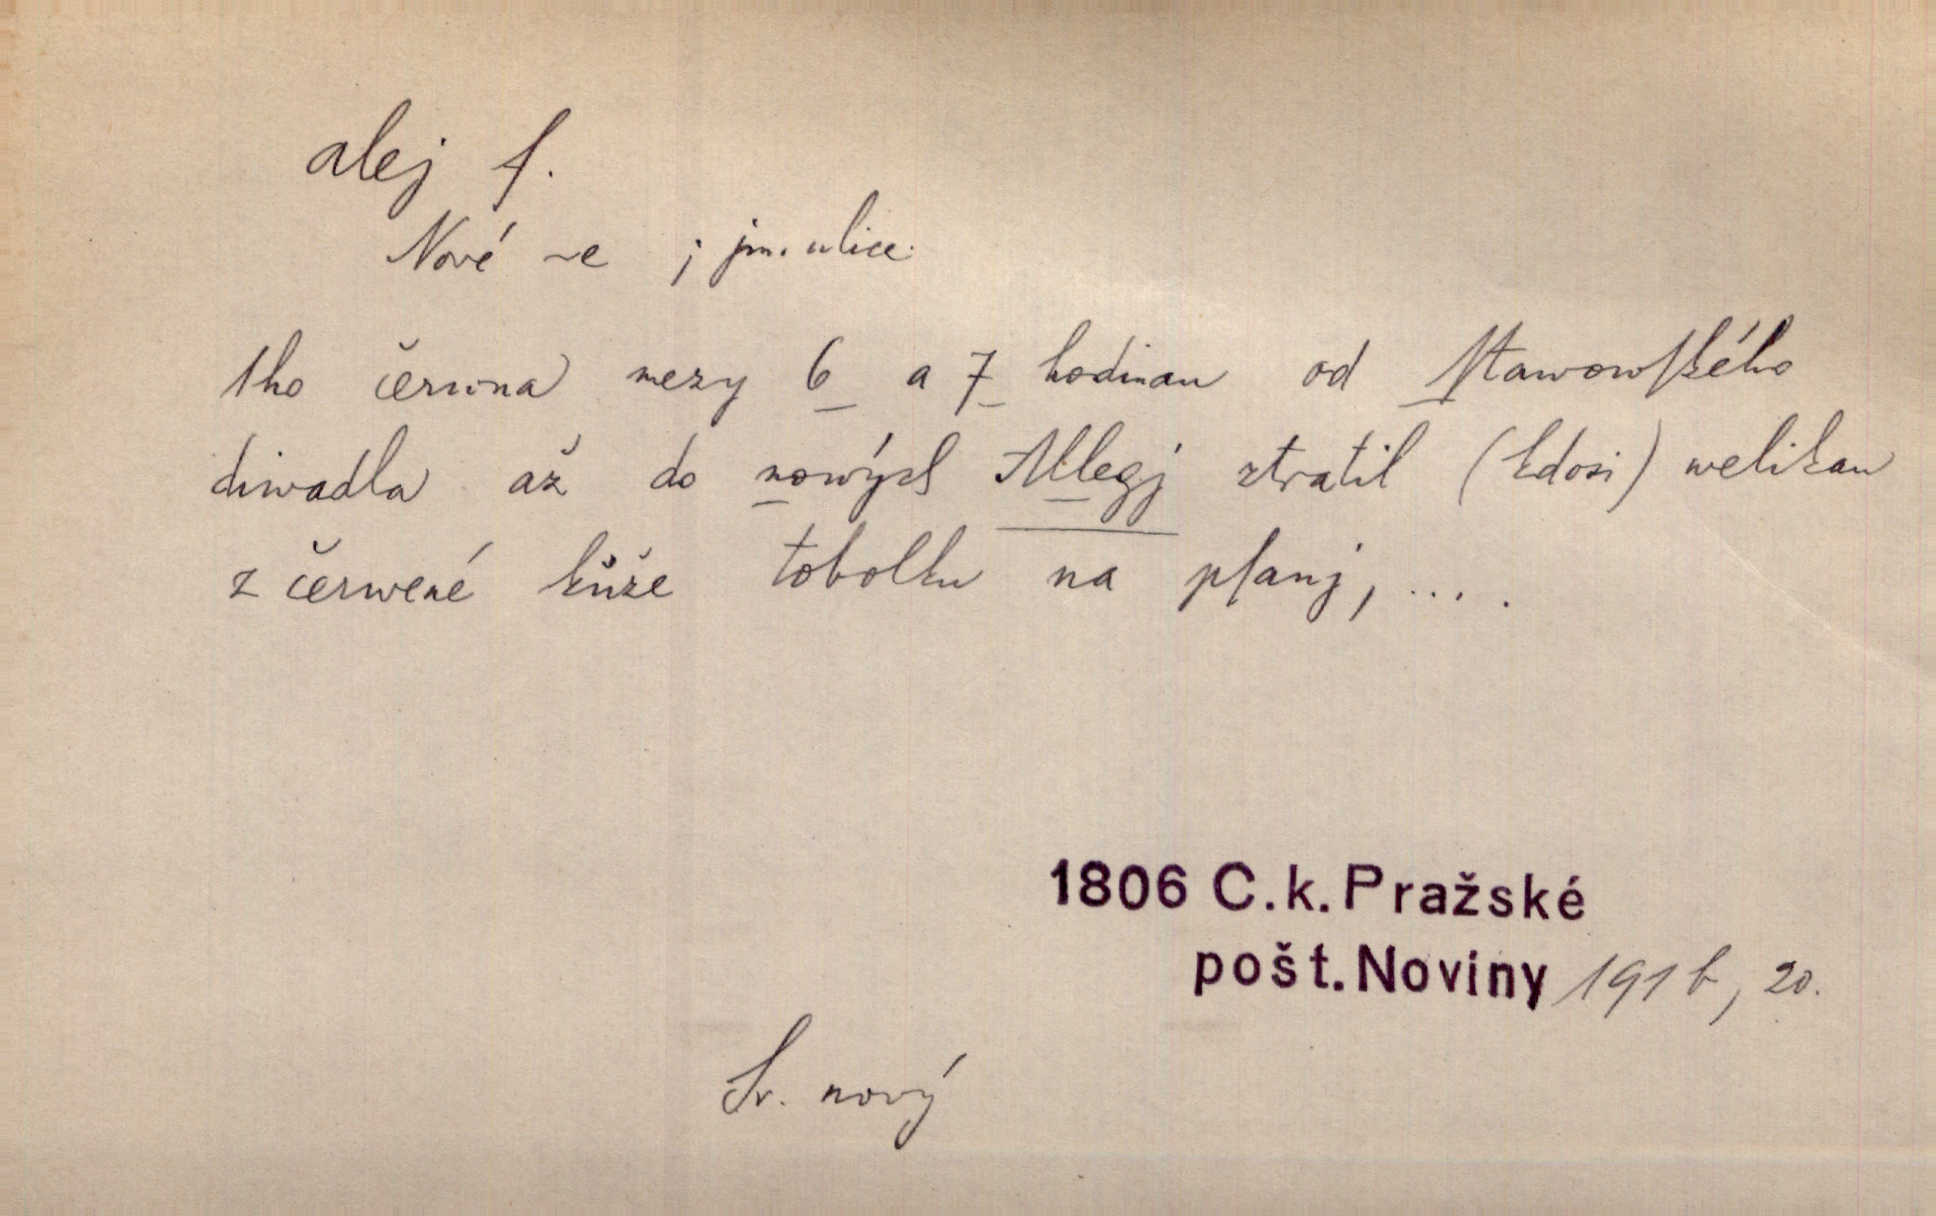 alej f.
Nové ~e ; jm. ulice.
1ho čerwna mezy 6 a 7 hodinau od Stawowského
diwadla až do nowých Allegj ztratil (kdosi) welikau
z čerwené kůže tobolku na psanj, ....
1806 C.k. Pražské
pošt. Noviny 191b, 20.
Sr. nový